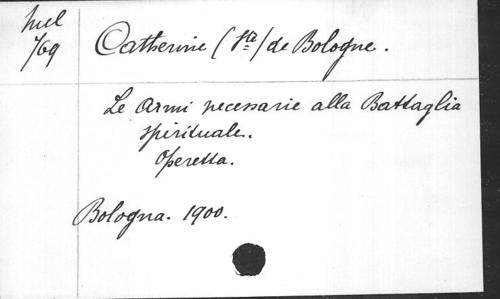 Catherine (Ste) de Bologne.
/69
Le Armi necessarie alla Battaglia
spirituale.
Operetta.
Bologna. 1900.